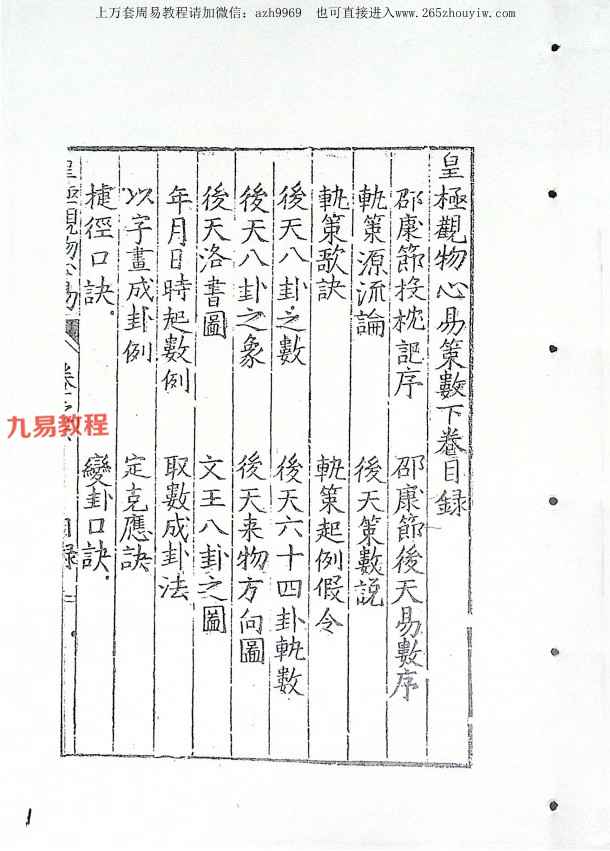 上万套周易教程请加微信：azh9969　也可直接进入www.265zhouyiw.com
皇極觀物心易策數下卷目録
邵康節投枕記序　邵康節後天易數序
軌策源流論　後天策數説
軌策歌訣　軌策起例假令
後天八卦之數　後天六十四卦軌數
後天八卦之象　後天来物方向圖
後天洛書圖　文王八卦之圖
年月日時起數例　取數成卦法
以字畫成卦例　定克應訣
捷徑口訣　變卦口訣
皇極觀物心易　卷　目録　一
九易教程
1